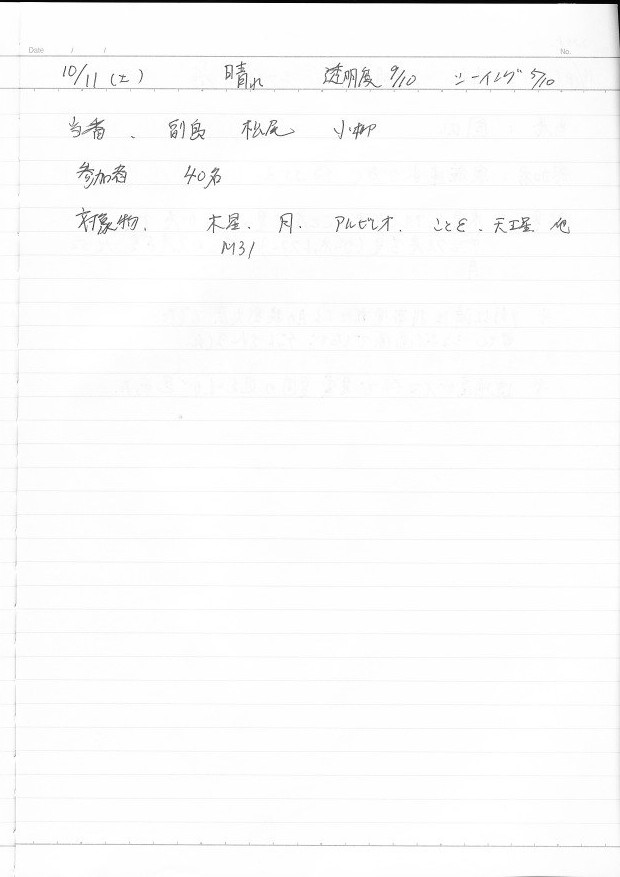 Date / / No.
10/11(土) 晴れ 透明度 9/10 シーイング 5/10
当番、副島 松尾 小柳
参加者 40名
対象物、木星、月、アルビレオ、ことε、天王星 他
M31